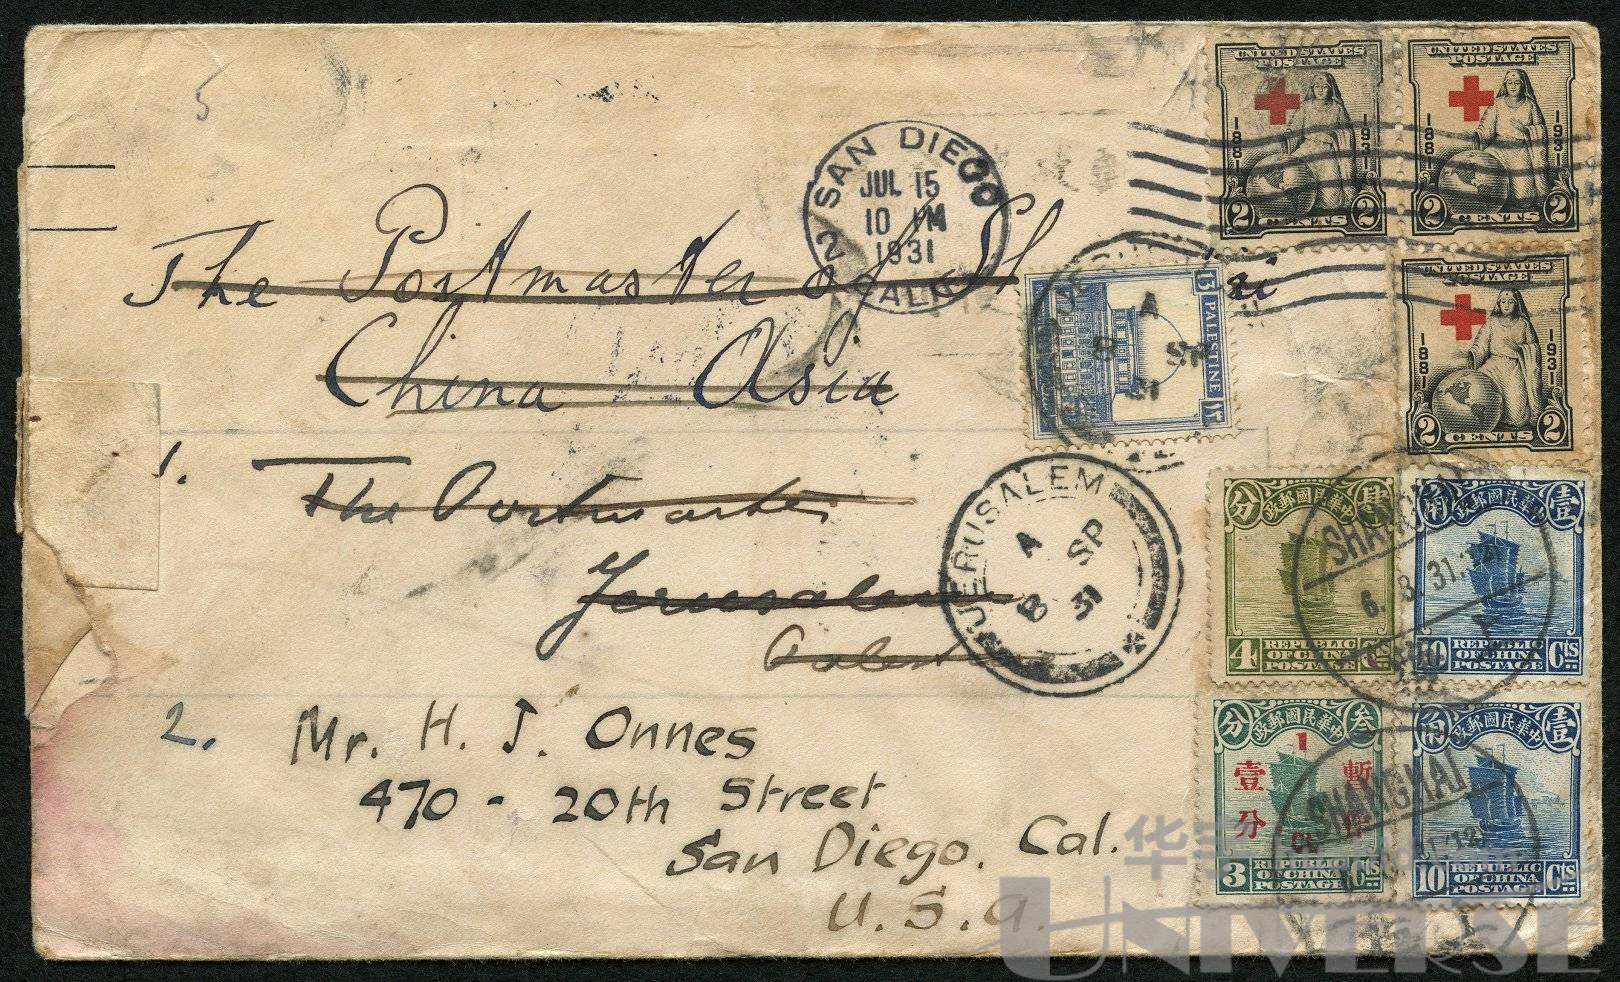 5
SAN DIEGO
JUL 15
10 PM
1931
2 CALIF
The Postmaster of Sh ai
China Asia
1.
The Postmaster
Jerusalem
Palest
2. Mr. H. J. Onnes
470 - 20th Street
San Diego. Cal.
U. S. A.
UNITED STATES
POSTAGE
1881 1931
2 CENTS 2
UNITED STATES
POSTAGE
1881 1931
2 CENTS 2
UNITED STATES
POSTAGE
1881 1931
2 CENTS 2
13 PALESTINE
A
8 SP
31
JERUSALEM
A
8 SP
31
分 中華民國郵政 肆
4 REPUBLIC OF CHINA POSTAGE
角 中華民國郵政 壹
10 REPUBLIC OF CHINA POSTAGE Cts
SHANGHAI
6. 8. 31.
分 中華民國郵政 叁
1
暫作
壹分
Ct.
3 REPUBLIC OF CHINA POSTAGE Cts
角 中華民國郵政 壹
10 REPUBLIC OF CHINA POSTAGE Cts
SHANGHAI
华宇
UNIVERSE